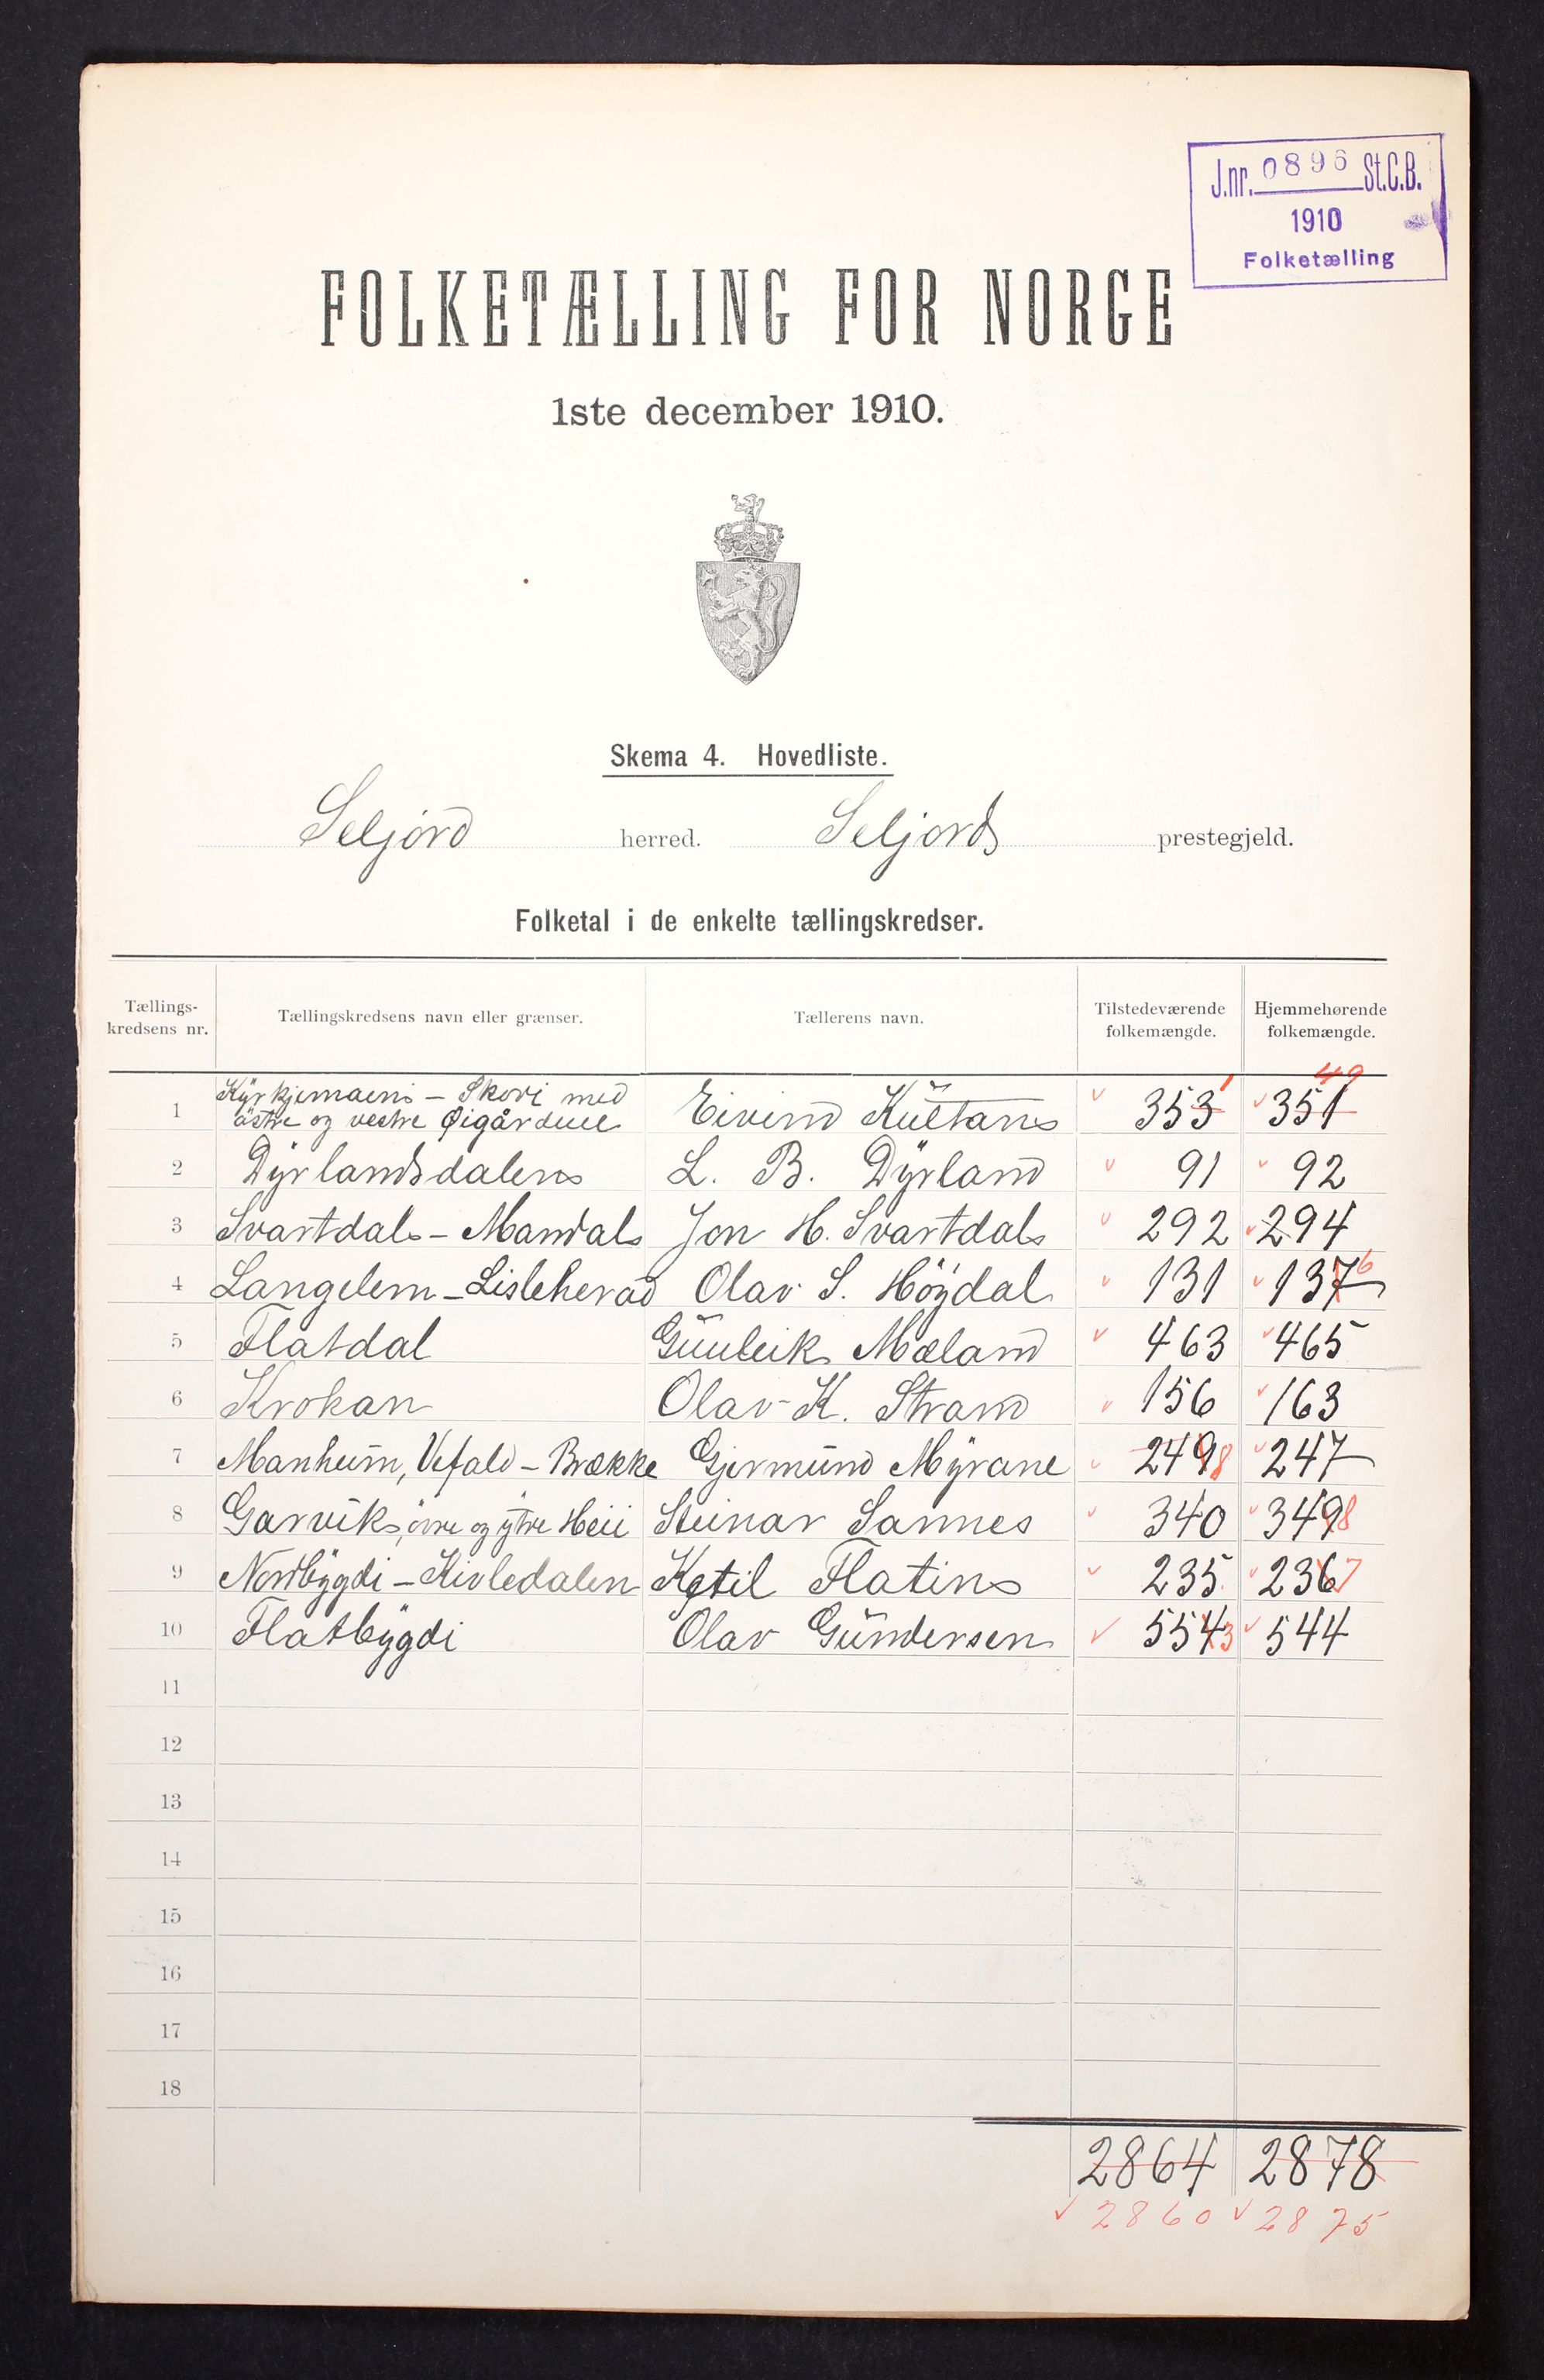 J.nr. 0896 St.C.B.
1910
Folketælling
FOLKETÆLLING FOR NORGE
1ste december 1910.
Skema 4. Hovedliste.
Seljord herred. Seljords prestegjeld.
Folketal i de enkelte tællingskredser.
Tællings-kredsens nr. Tællingskredsens navn eller grænser. Tællerens navn. Tilstedeværende folkemængde. Hjemmehørende folkemængde.
49
1 Kyrkjemoen – Skori med Eivind 353 1 351
østre og vestre Øigårdene
2 Dyrlandsdalen L. B. Dyrland 91 92
3 Svartdal – Mandal Jon H. Svartdal 292 294
4 Langelem – Lisleherad Olav S. Höydal 131 137 6
5 Flatdal Gunleik Mæland 463 465
6 Krokan Olav K. Strand 156 163
7 Manheim, Vefald – Brække Gjermund Myrane 249 8 247
8 Garvik, övre og ytre Heii Steinar Sannes 340 349 8
9 Nordbygdi – Kivledalen Ketil Flatin 235 236 7
10 Flatbygdi Olav Gundersen 554 3 544
11
12
13
14
15
16
17
18
2864 2878
2860 2875